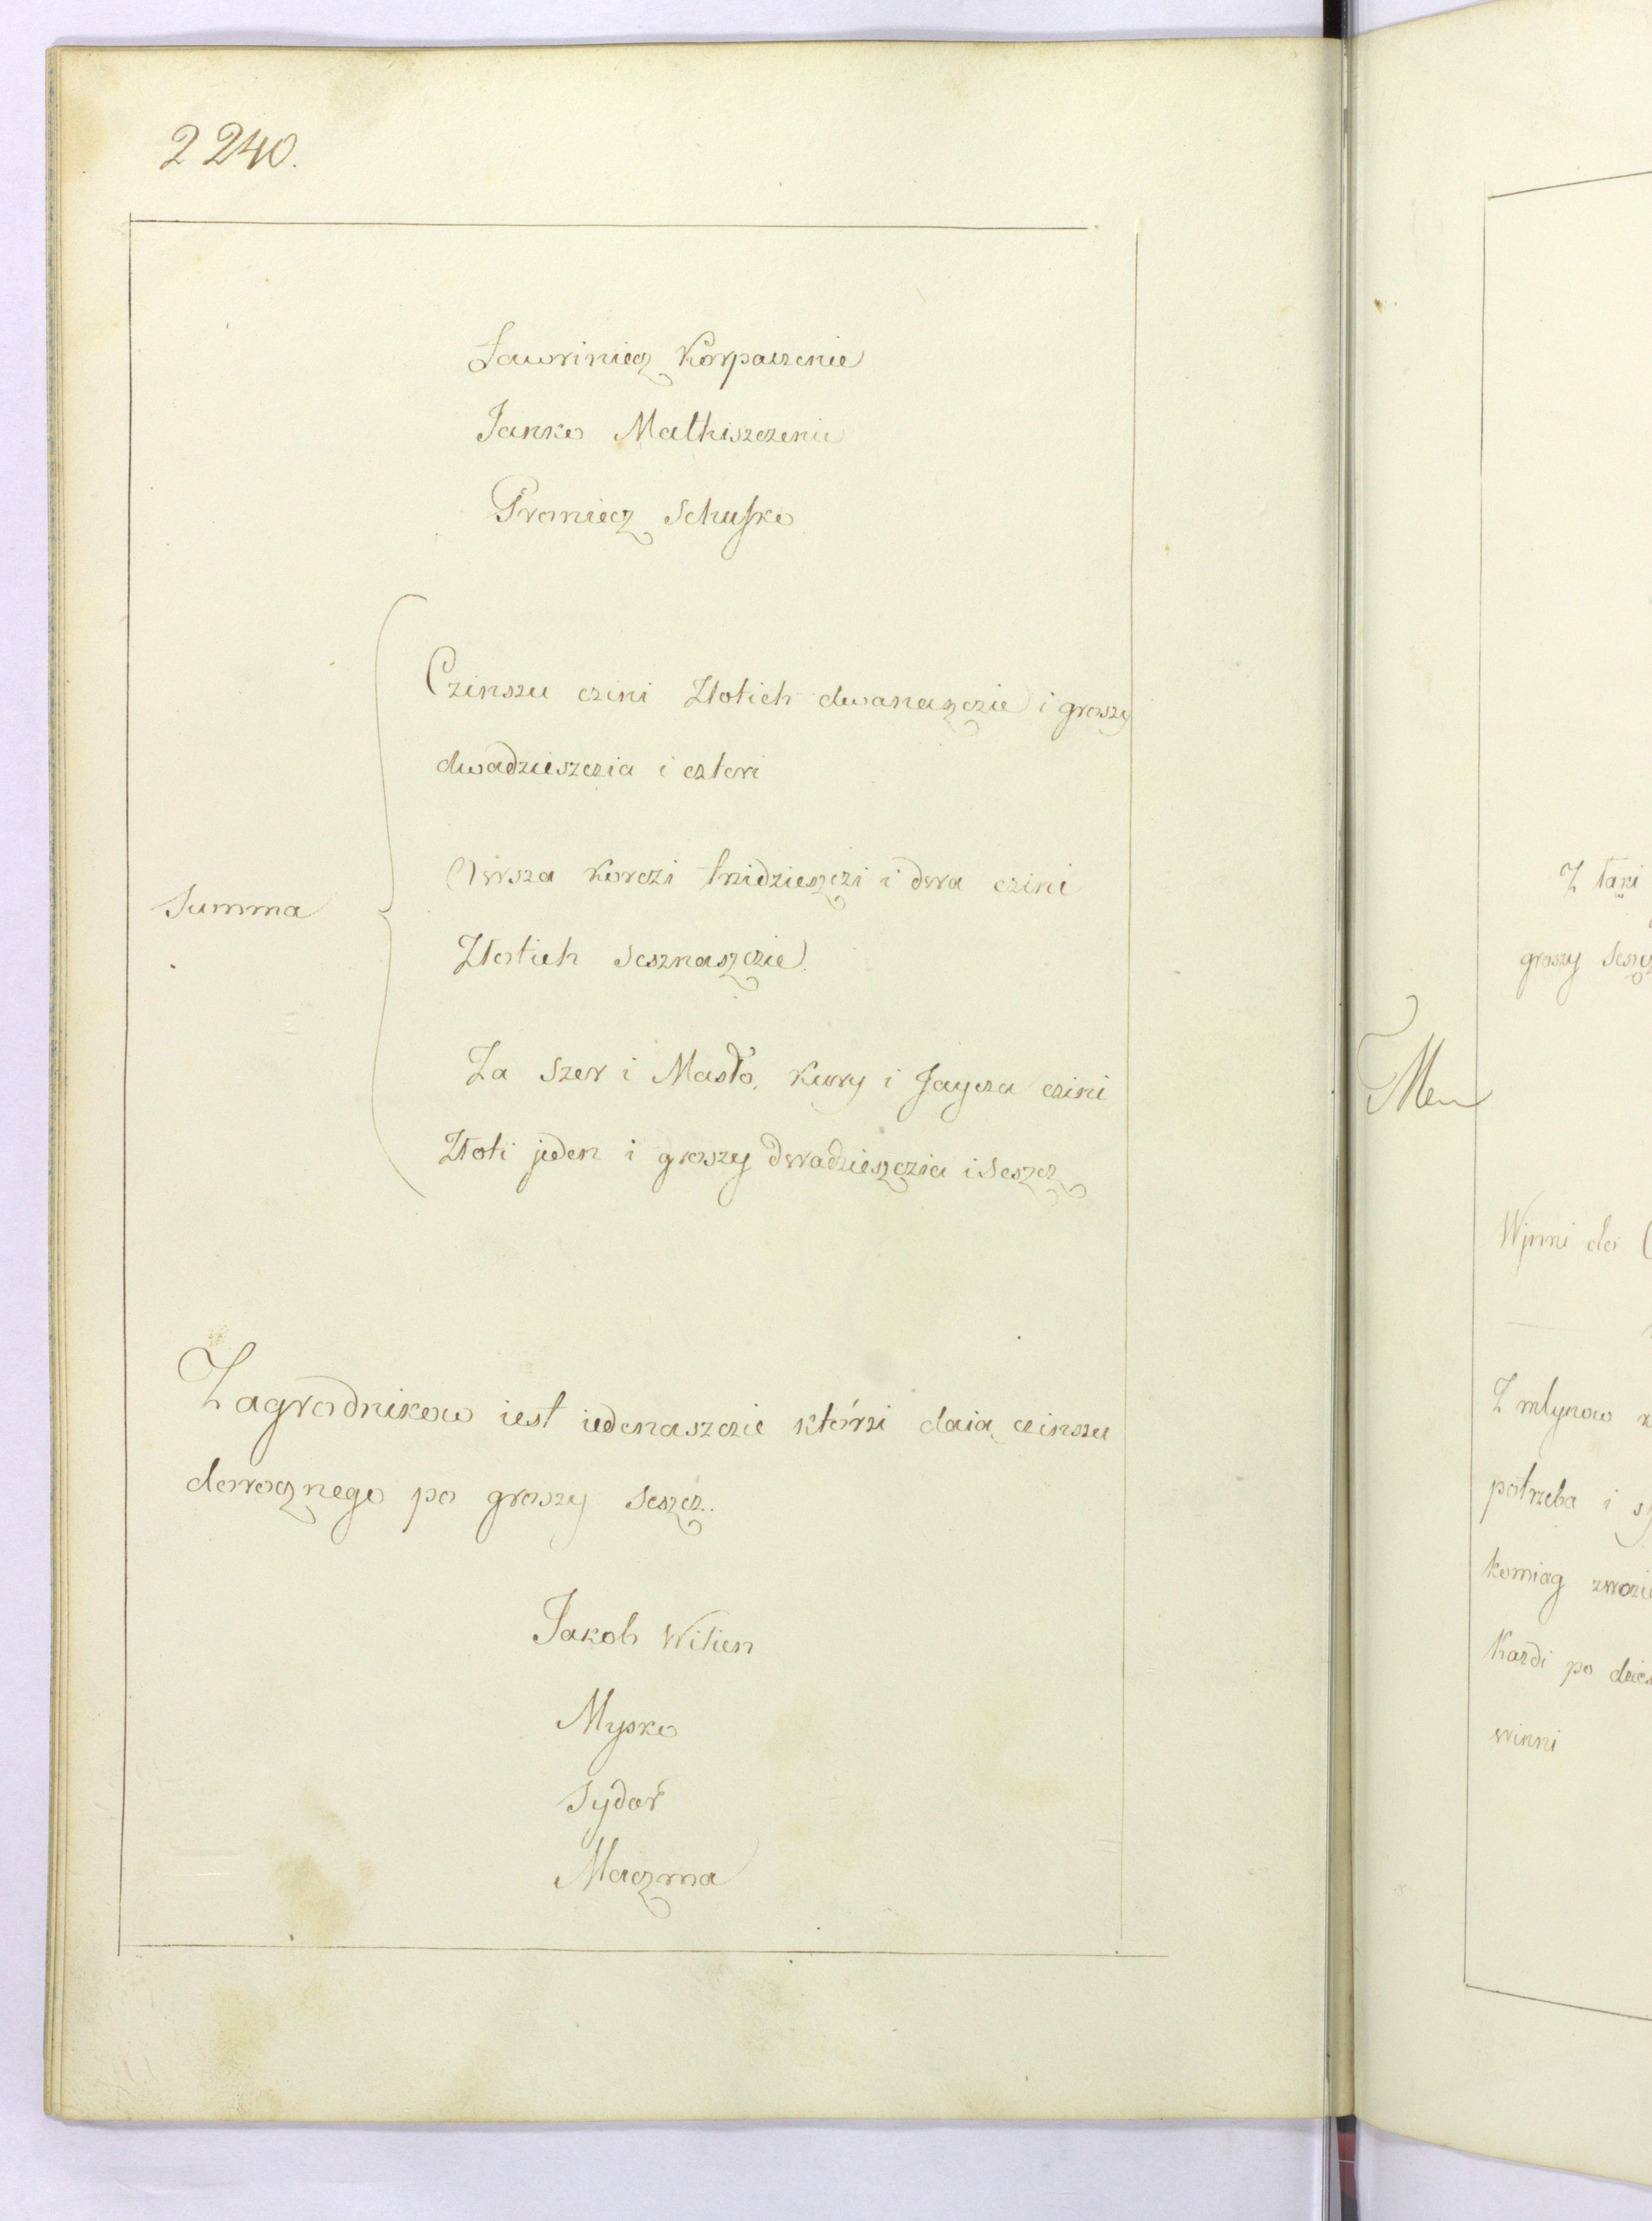 2240.
Lawriniecz Korpaczenie
Janko Mathiszczenie
Promiecz Schusko
Czinszu czini Złotich dwanaszczie i groszy
dwadzieszczia i czteri
Owsza Korczi trzidzieszczi i dwa czini
Summa
Złotich Sesznaszczie
Za Szer i Masło, Kury i Jaycza czini
Złoti jeden i groszy dwadzieszczia i Seszcz
Zagrodnikow iest iedenaszczie którzi daią czinszu
dorocznego po groszy Seszcz.
Jakob Witien
Mysko
Sydor
Maczma
Z łaki
groszy Seszcz
Winni do
Z młynow
potrzeba i
komiag
Kazdi po
winni